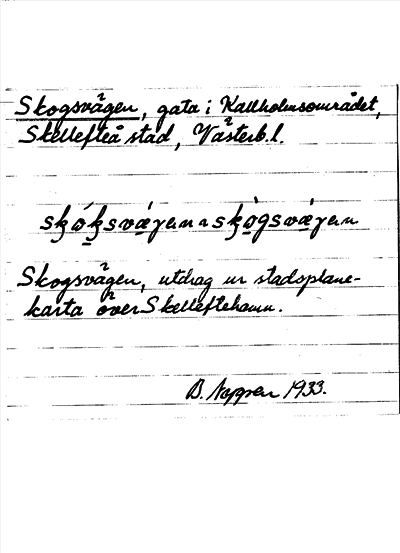 Skogsvägen, gata i Kallholmsområdet,
Skellefteå stad, Västerb. l.
Skogsvägen, utdrag ur stadsplane-
karta över Skelleftehamn.
B. 1933.